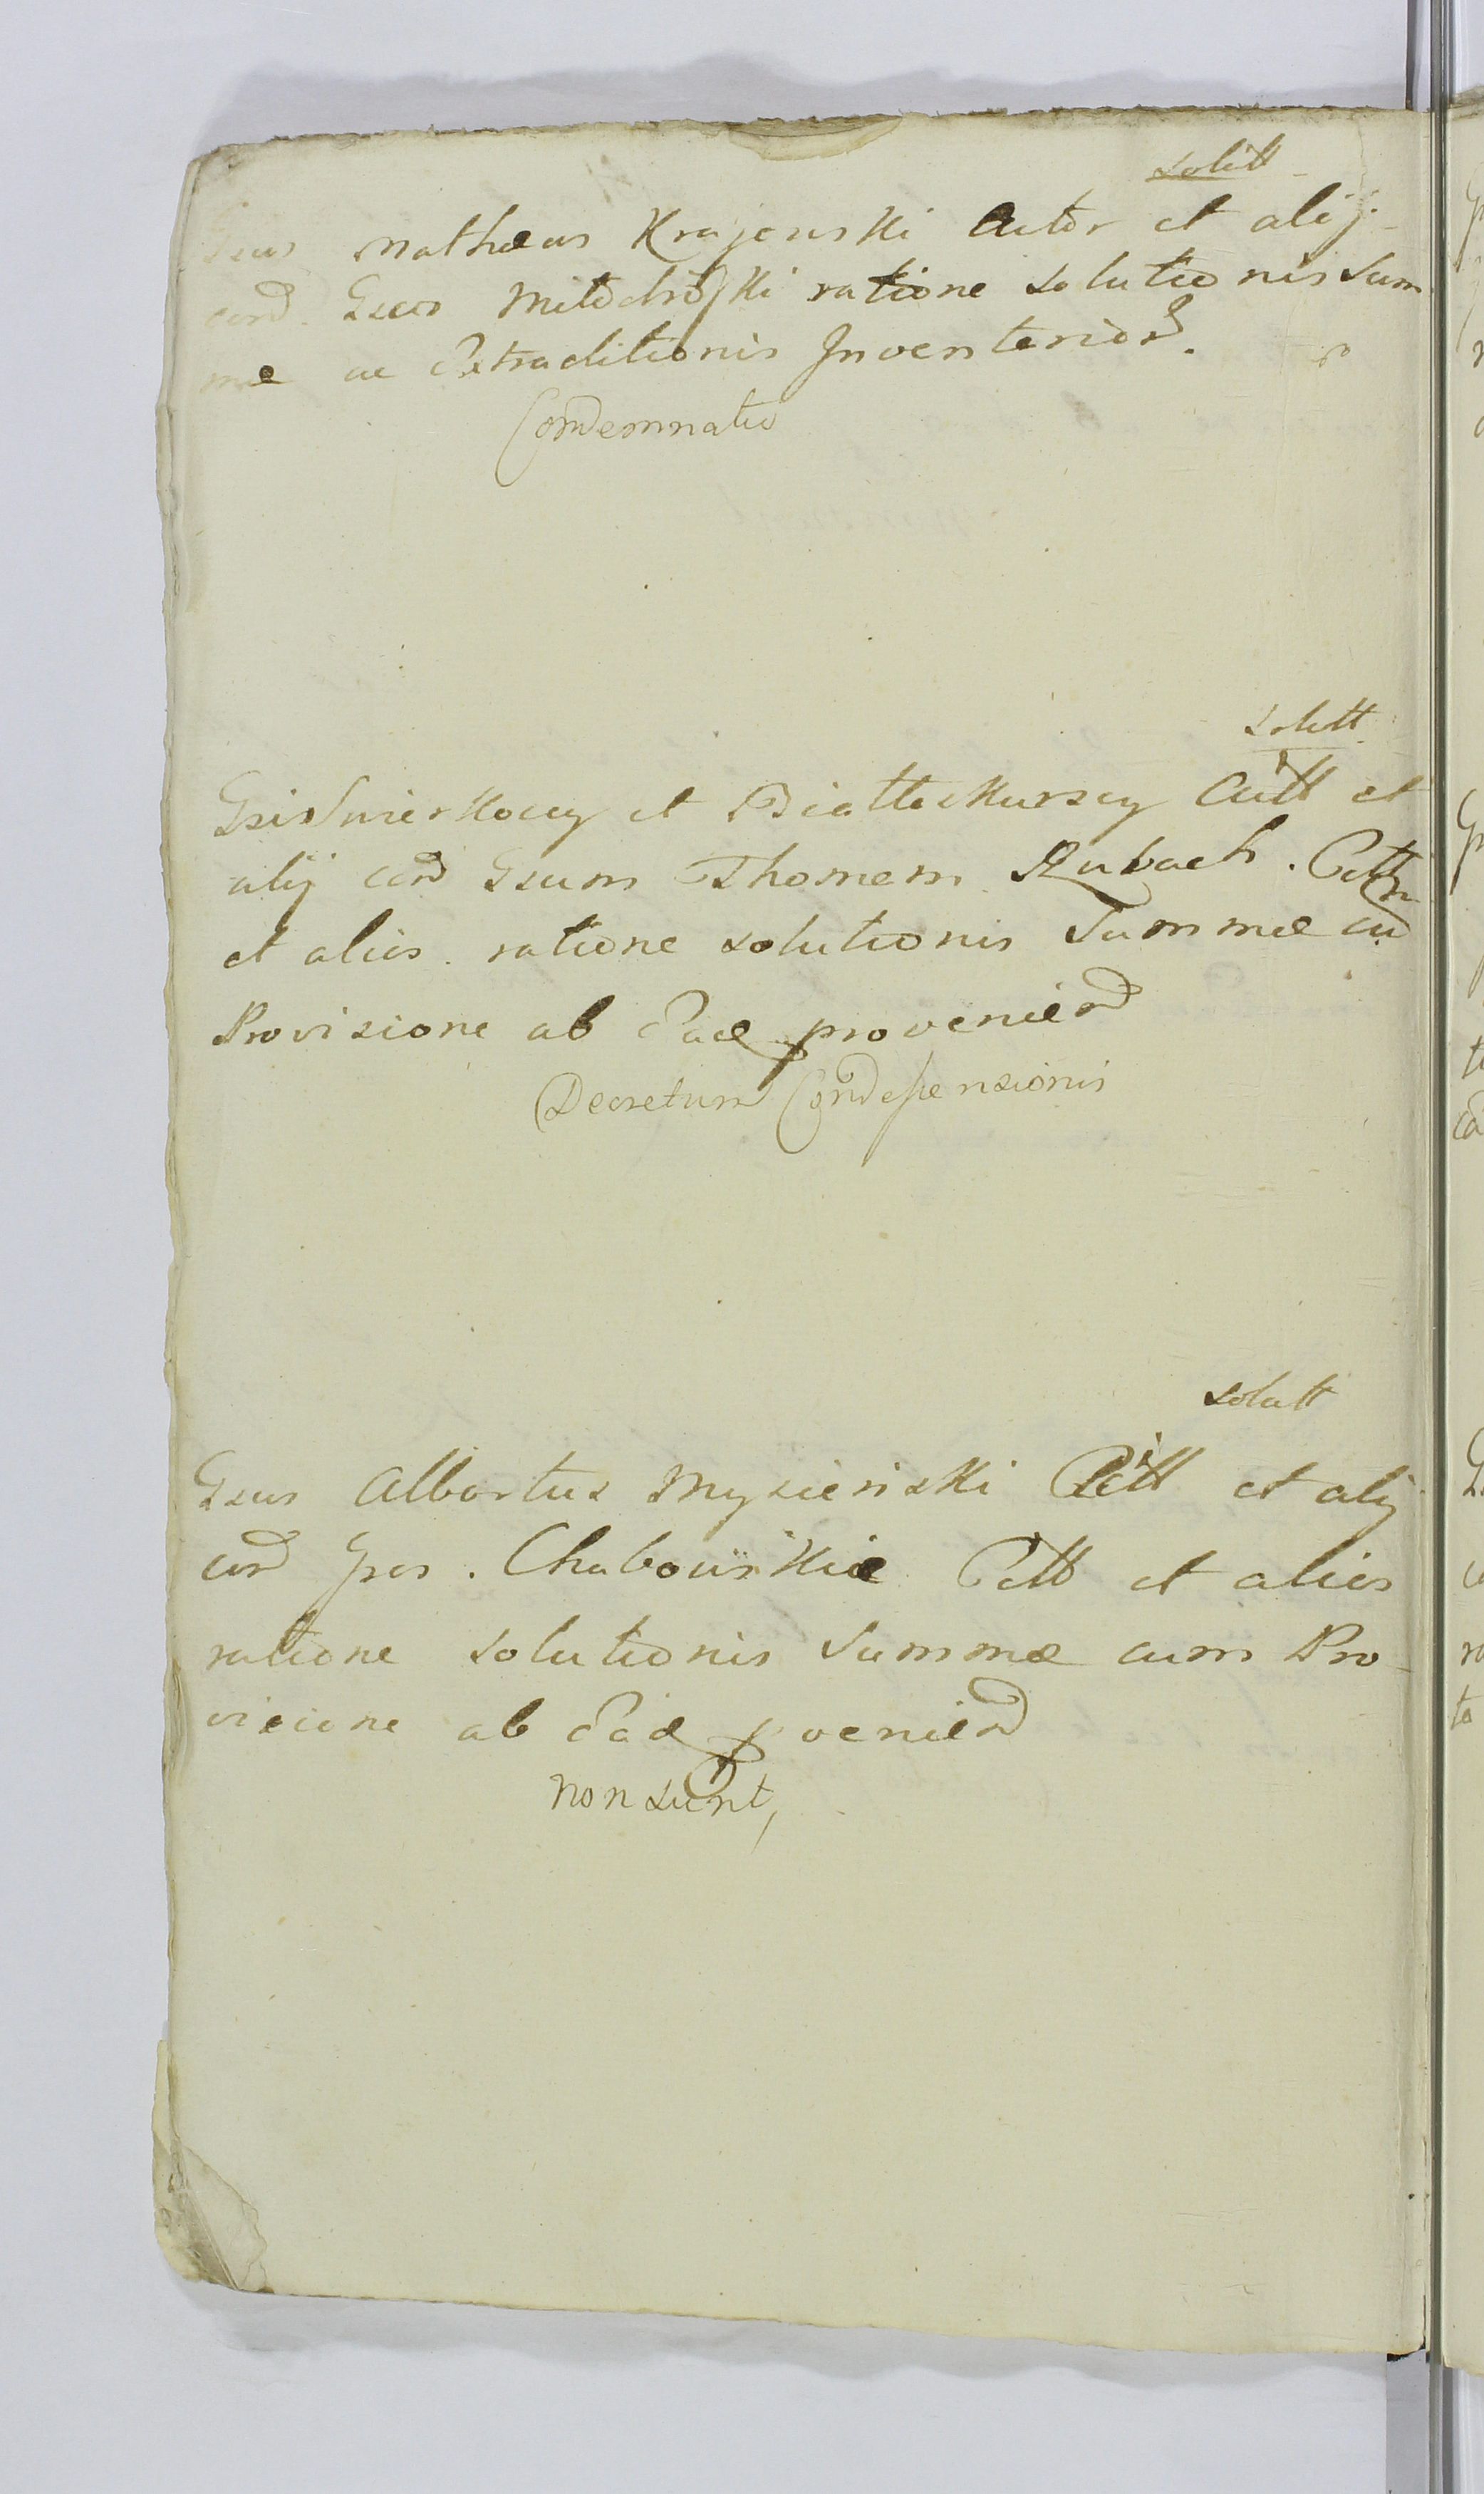 solutt
Gsus Mathæus Krajewski Actor et alij
con Gsos Mitodroski ratione solutionis Sum
mæ ac Extraditionis Inventarior.
Condemnatio
solutt
Gsi Swierkoccy et Białłoskurscy Actt et
alij con Gsum Thomam Rubach. Cittm
et alios. ratione solutionis Summæ cu
Provisione ab Eade provenien
Decretum Condescensionis
solutt
Gsus Albertus Mysieński Actt et alij
con Gsos. Chabowskie Citt et alios
ratione solutionis Summæ cum Pro-
visione ab Eade pvenien
non sunt,